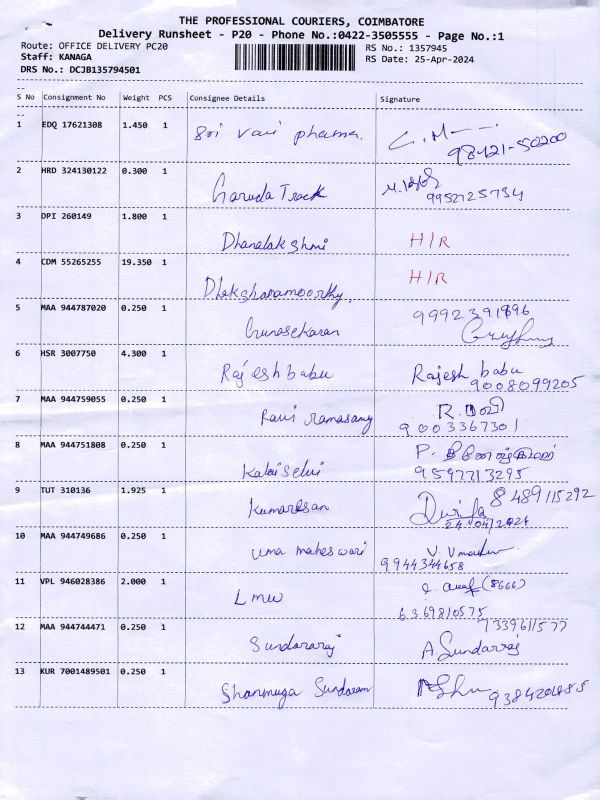 THE PROFESSIONAL COURIERS, COIMBATORE
Delivery Runsheet - P20 - Phone No.:0422-3505555 - Page No.:1
Route: OFFICE DELIVERY PC20 RS No.: 1357945
Staff: KANAGA RS Date: 25-Apr-2024
DRS No.: DCJB135794501
S No Consignment No Weight PCS Consignee Details Signature
1 EDQ 17621308 1.450 1 Sri Vari pharma. 98421-50200
2 HRD 324130122 0.300 1 Garuda Track 9952725734
3 DPI 260149 1.800 1 Dhanalakshmi H/R
4 CDM 55265255 19.350 1 Dhakshanamoorthy, H/R
5 MAA 944787020 0.250 1 Gunasekaran 9992391896
6 HSR 3007750 4.300 1 Rajesh babu Rajesh babu
9008099205
7 MAA 944759055 0.250 1 Ravi ramasamy R. ரவி
9003367301
8 MAA 944751808 0.250 1 Kalaiselvi P.
9597713295
9 TUT 310136 1.925 1 Kumaresan 8489115292
24/04/2024
10 MAA 944749686 0.250 1 uma maheswari
9944344658
11 VPL 946028386 2.000 1 Lmw (8666)
6369810575
12 MAA 944744471 0.250 1 Sundararaj 7339611577
A. Sundarraj
13 KUR 7001489501 0.250 1 Shanmuga Sundaram